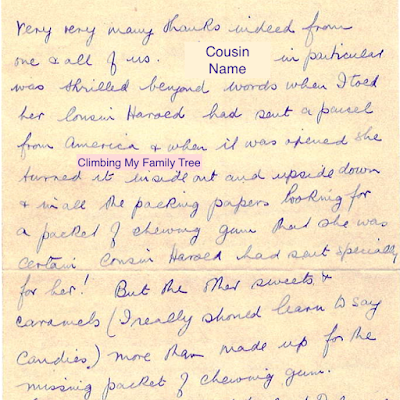 Very very many thanks indeed from
one & all of us. Cousin Name in particular
was thrilled beyond words when I told
her Cousin Harold had sent a parcel
from America & when it was opened she
Climbing My Family Tree
turned it inside out and upside down
& in all the packing papers looking for
a packet of chewing gum that she was
certain Cousin Harold had sent specially
for her! But the other sweets &
caramels (I really should learn to say
candies) more than made up for the
missing packet of chewing gum.